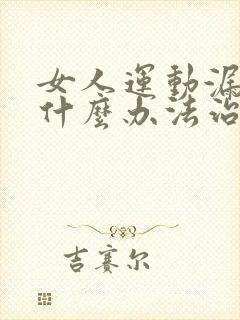 女人運動漏
什麼办法治
吉賽尔